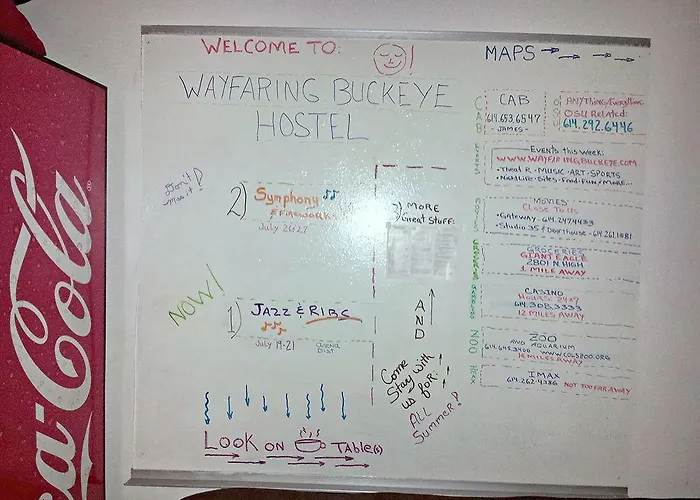 WELCOME TO: !
WAYFARING BUCKEYE
HOSTEL
MAPS
Don't
miss it!
2) Symphony
& FIREWORK
July 26/27
NOW!
1) JAZZ & RIBS
July 19-21
arena
Dist
3) MORE
Great Stuff:
AND
Come
Stay with
us for:
ALL
Summer!
LOOK ON TABLE(S)
CAB
614.653.6547
- JAMES -
ANYTHING/Everything
OSU Related:
614.292.6446
Events this week:
WWW.WAYFARINGBUCKEYE.COM
• Theat R • MUSIC • ART • SPORTS
• Nightlife • Sites • Food • Fun / more...
MOVIES
Close To Us
• Gateway - 614.247.4433
• Studio 35 & Door House - 614.261.1581
GROCERIES
GIANT EAGLE
2801 N HIGH
1 MILE AWAY
CASINO
Hours: 24x7
614.308.3333
12 MILES AWAY
ZOO
AND AQUARIUM
614.645.3400 WWW.COLSZOO.ORG
16 MILES AWAY
IMAX
614.262.4386 NOT TOO FAR AWAY
Coca-Cola